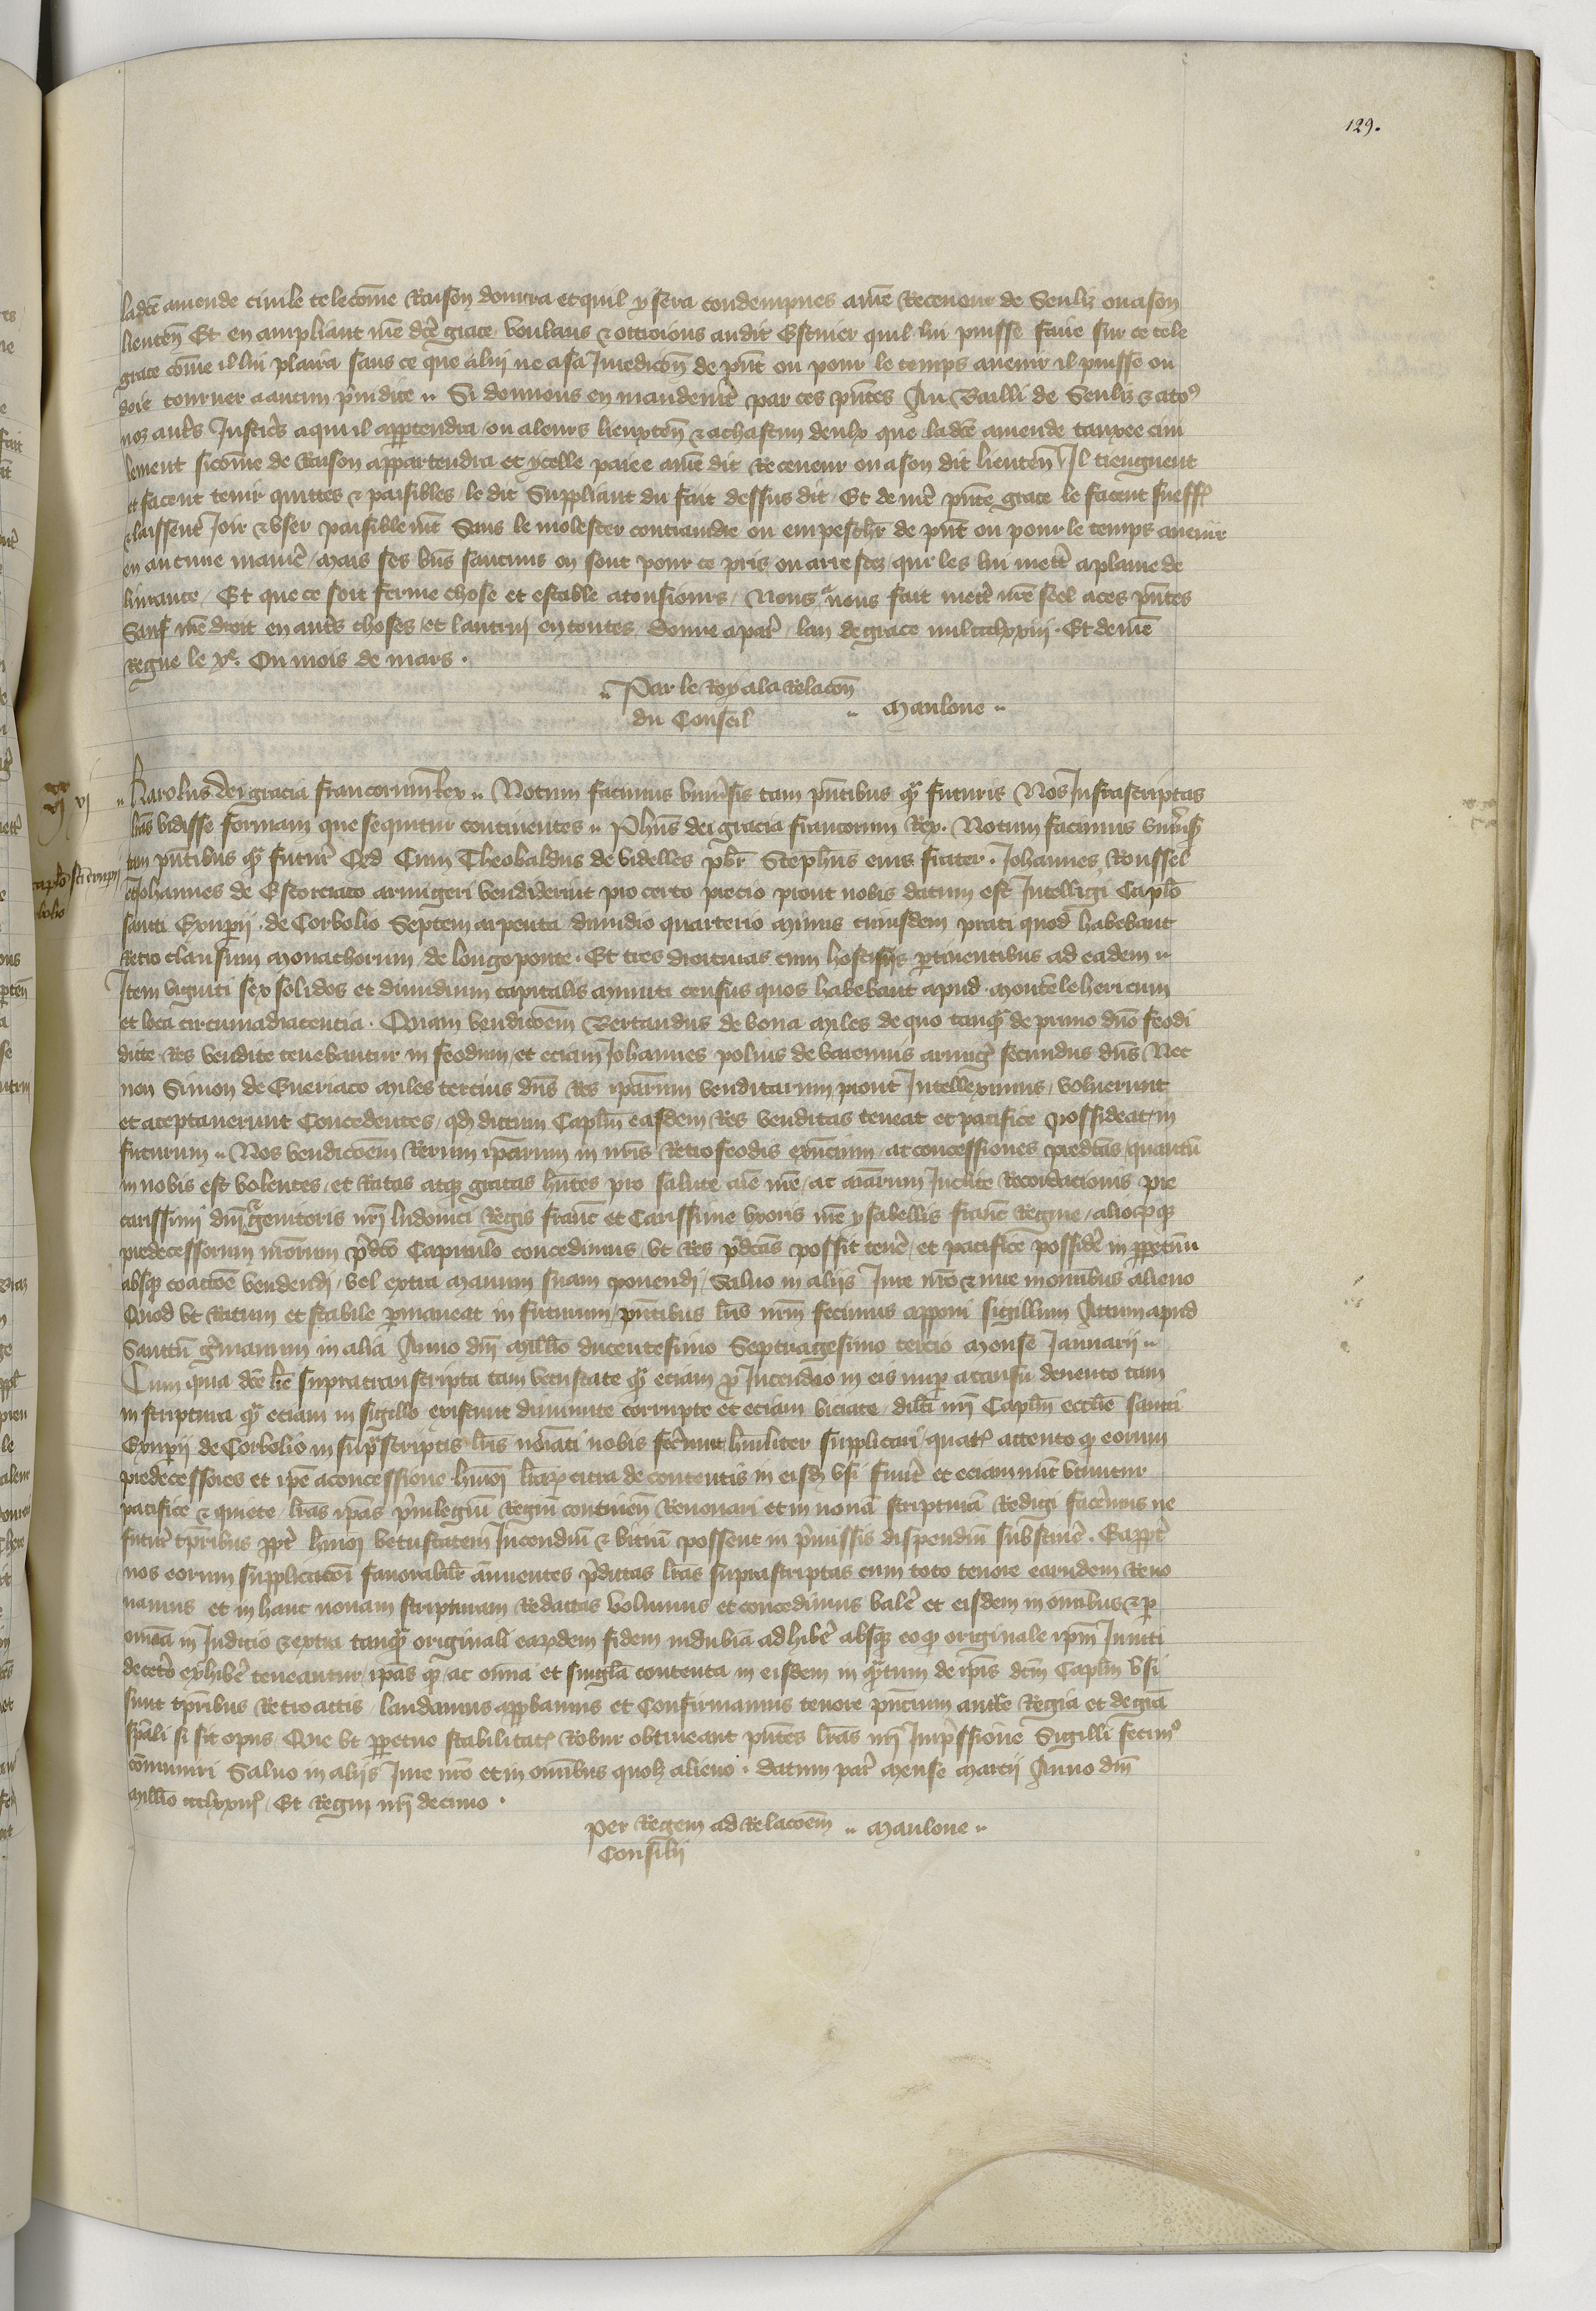 129.
ladcē amende civile tele cōme Raison donrra et quil y sera condempnes a nrē Receveur de Senliz ou a son
lieuteñ Et en ampliant nrē dcē grace voulans & ottroions audit Estuier quil lui puisse faire sur ce tele
grace cōme il lui plaira sans ce que a lui ne a sa Juridicoñ de pñt ou pour le temps avenir il puisse ou
doie tourner a aucun p̄iudice Si donnons en mandemēt par ces pñtes Au Bailli de Senliz & a toꝰ
noz autr̄s Justicīrs a qui il apptendra ou a leurs lieuxteñ & a chascun deulx que ladcē amende tauxee civi
lement sicōme de Raison appartendra et ycelle paiee a nrē dit Receveur ou a son dit lieuteñ Il tiengnent
et facent tenir quittes & paisibles le dit Suppliant du fait dessus dit Et de nrē pñte grace le facent sueffr̄
& laissent Joir & user paisiblemēt Sans le molester contraindre ou empeschr̄ de pñt ou pour le temps avenir
en aucune manīe / Mais ses bñs saucuns en sont pour ce pris ou arrestez qui les lui mettē a plaine de
livrance / Et que ce soit ferme chose et estable a tousiours / Nous avons fait mettē nrē seel a ces pñtes
Sauf nrē droit en autr̄s choses et lautruj en toutes donne a par̄ lan de grace mil ccclxxiij . Et de nrē
Regne le xe. Ou mois de mars .
Par le Roy a la Relacoñ
du Conseil
Manlone
xx
vi vj
Karolus dei gracia francorum Rex Notum facimus univ̄sis tam pñtibus qꝫ futuris Nos Infrascriptas
lr̄as vidisse formam que sequitur continentes Phūs dei gracia francorum Rex . Notum facimus univ̄sis
tam pñtibus qꝫ futur̄ Qd Cum Theobaldus de videlles pbr̄ Stephūs eius frater . Johannes Roussel
et Johannes de Escorciaco armigeri vendiderint pro certo precio prout nobis datum est Intelligi Caplō
capl̄o sc̄i exuperij
sancti Exuperij . de Corbolio Septem arpenta dimidio quarterio minus cuiusdem prati quod habebant
retro clausum monachorum de longoponte . Et tres droituras cum hostisiis pertinentibus ad eadem
Item viginti sex solidos et dimidium capitalis minuti census quos habebant apud montēlehericum
et loca circumadiacentia . Quam vendicoēm Bertandus de bona miles de quo tanqꝫ de primo dn̄o feodi
dicte res vendite tenebantur in feodum / et eciam Johannes polius de varennis armigē secundus dn̄s Nec
non Simon de Eueriaco miles tercius dn̄s res ip̄arum venditarum prout Intelleximus / voluerunt
et acceptaverunt Concedentes / qd dictum Capl̄m easdem res venditas teneat et pacifice possideat in
futurum Nos vendicoēm rerum ip̄arum in nrīs retrofeodis ex̄ncium / ac concessiones predcās quantū
in nobis est volentes / et Ratas atqꝫ gratas hn̄tes pro salute aīe nrē / ac aīarum Inclite Recordacionis pre
carissimi dn̄j genitoris nrī ludovici Regis franc̄ et Carissime uxoris nrē ysabellis franc̄ Regine / aliorumqꝫ
predecessorum nrōrum p̄dc̄o Capitulo concedimus / ut res p̄dcās possit tenē / et pacifice possidē in ppetuū
absqꝫ coactōe vendendj / vel extra manum suam ponendj / Salvo in alijs Jure nrō & jure in omībus alieno
Quod ut Ratum et stabile p̄maneat in futurum / pñtibus lr̄is nrm̄ fecimus apponi sigillum Actum apud
Sanctū ḡmanum in laia Anno dn̄j millīo ducentesimo Septuagesimo tercio mense Januarij
Cum quia dcē lrē supratranscripte tam vetustate qꝫ eciam pr̄ Incendio in eis nup̄ a casu devento tam
in scriptura qꝫ eciam in sigillo existunt diminute corrupte et eciam viciate / dilcī nrī Capl̄m ecclīe sancti
Exuperij de Corbolio in suprascriptis lr̄is noīati nobis fecerunt humiliter supplicari / quatꝰ attento qꝫ eorum
predecessores et ip̄i a concessione hmōi lr̄arꝫ citra de contentis in eisd̄ usi fuerūt et eciam nūc utuntur
pacifice & quiete / lr̄as ip̄as p̄vilegiū Regiū contineñ Renovari et in novā scripturā Redigi facerēmus ne
futur̄ tp̄ribus ppt̄ hmōi vetustatem Incendiū & vitiū possent in p̄missis dispendiū substinē . Eappt̄
nos eorum supplicacōi favorabilr̄ annuentes p̄dictas lr̄as suprascriptas cum toto tenore earudem Reno
vamus et in hanc novam scripturam Redactas volumus et concedimus valē et eisdem in omībus & p̄
omīa in Judicio & extra tanqꝫ originali earꝫdem fidem indubiā adhibē absqꝫ eo qꝫ originale ip̄m Inviti
deceterō exhibē teneantur ip̄as qꝫ ac omīa et singl̄a contenta in eisdem in qꝫtum de ip̄is dcm̄ Capl̄m usi
sunt tp̄ribus Retroactis / laudamus approbamus et Confirmamus tenore pñcium auctē Regia et de grā
sp̄ali si sit opus / Que ut ppetue stabilitatꝭ robur obtineant pñtes lr̄as nrī Imp̄ssione Sigilli fecimꝰ
cōmuniri Salvo in alijs Jure nrō et in omībus quolꝫ alieno . datum par̄ mense marcij Anno dn̄j
millīo ccclxxiijꝰ / Et Regni nrī decimo .
Per Regem ad Relacoēm
Consilij
Manlone